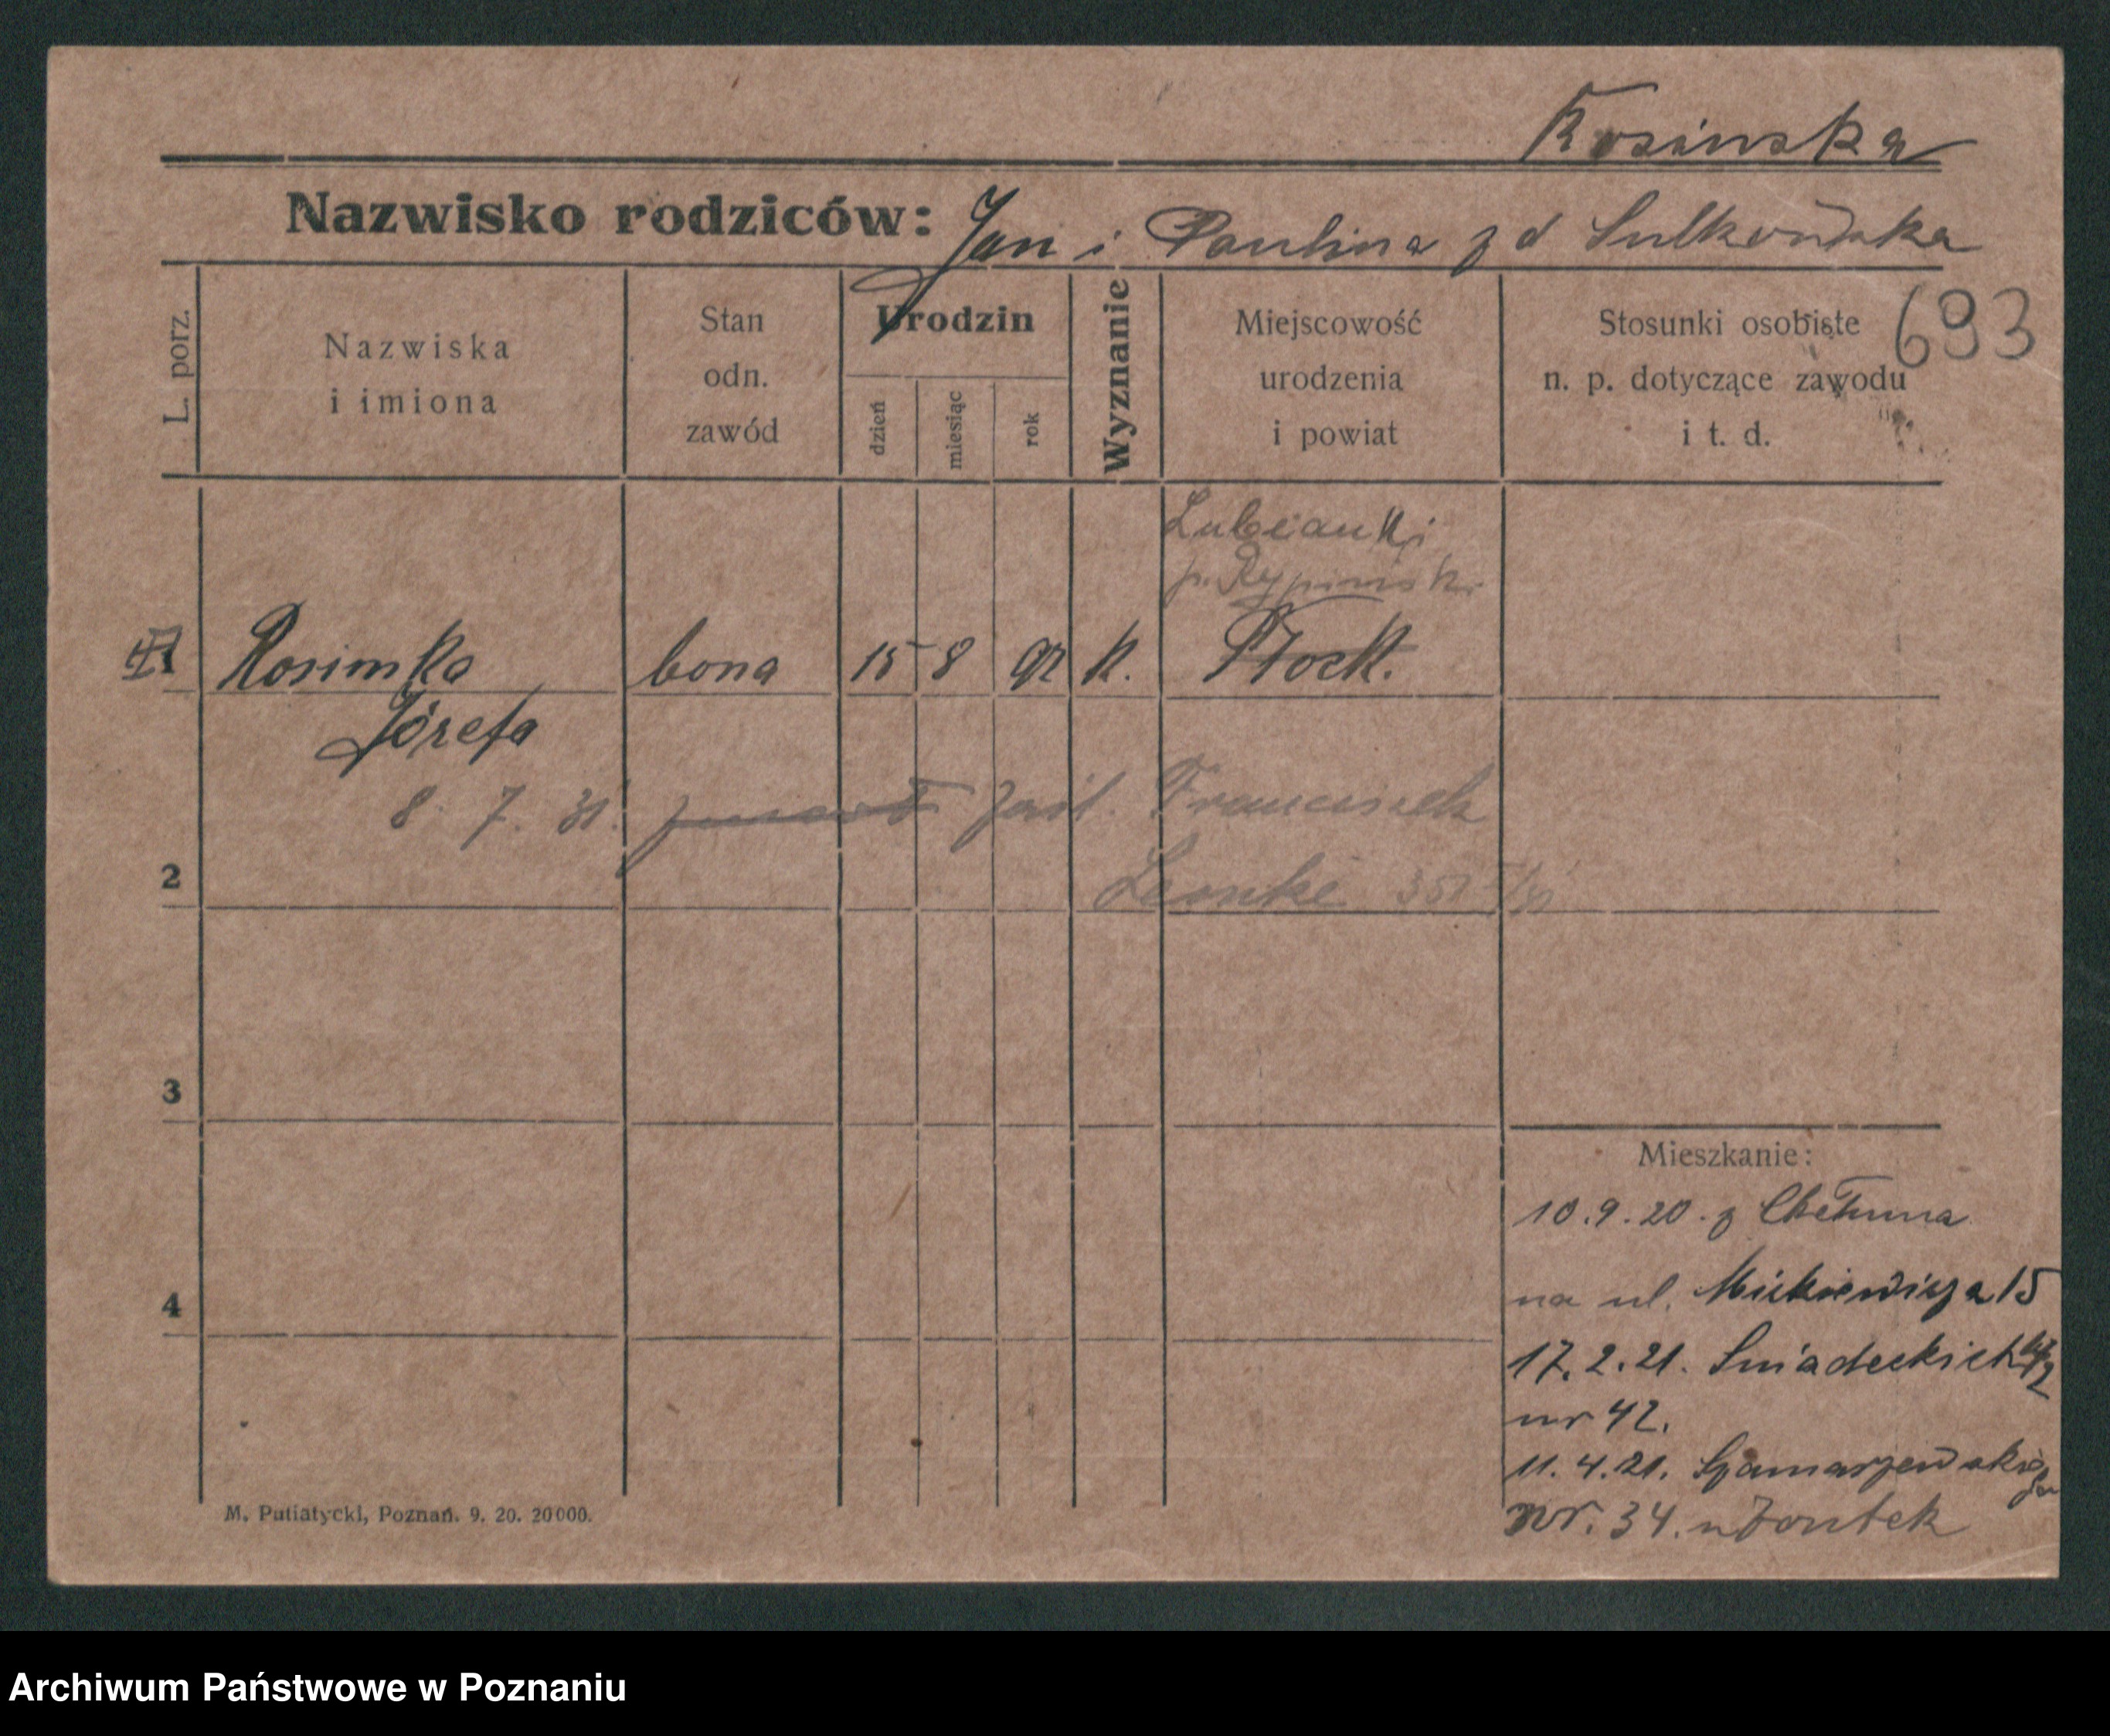 Rosinska
Nazwisko rodziców: Jan i Paulina z d Sulkowska
693
L. porz.
Nazwiska
i imiona
Stan
odn.
zawód
Urodzin
dzień
miesiąc
rok
Wyznanie
Miejscowość
urodzenia
i powiat
Stosunki osobiste
n. p. dotyczące zawodu
i t. d.
Lubianki
p. Rypinsk.
1 Rosinska bona 15 8 92 k. Płock.
Józefa
8. 7. 31. zaśl. Franciszek
2 Lemke
3
4
Mieszkanie:
10.9.20. z Chełmna
na ul. Mickiewicza 15
17.2.21. Sniadeckich
nr 42.
11.4.21. Szamarzewskiego
nr. 34. u Zontek
M. Putiatycki, Poznań. 9. 20. 20000.
Archiwum Państwowe w Poznaniu